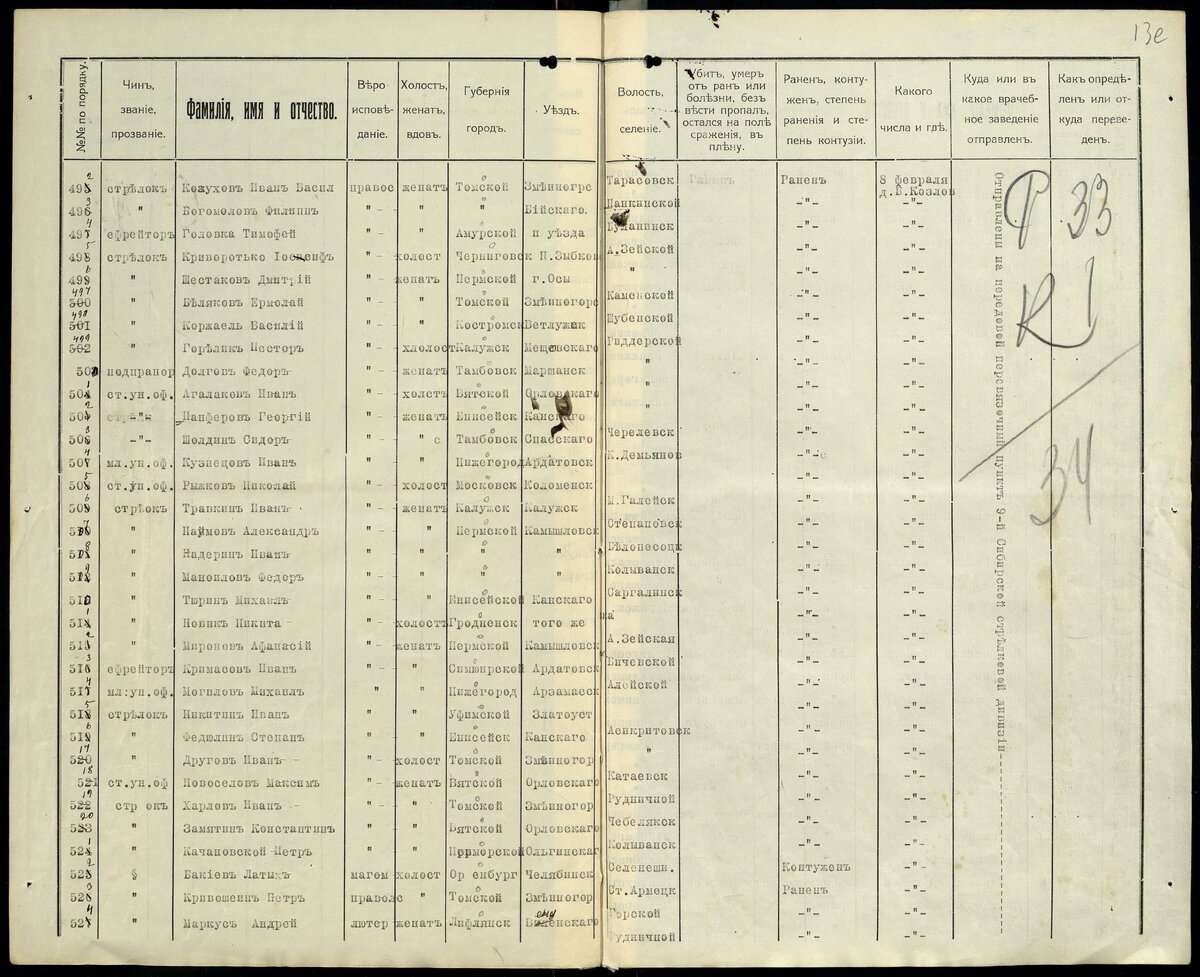 13е
№№ по порядку.
Чинъ, званіе, прозваніе.
Фамилія, имя и отчество.
Вѣро исповѣ- даніе.
Холостъ, женатъ, вдовъ.
Губернія городъ.
Уѣздъ.
Волость, селеніе.
Убитъ, умеръ отъ ранъ или болѣзни, безъ вѣсти пропалъ, остался на полѣ сраженія, въ плѣну.
Раненъ, конту- женъ, степень раненія и сте- пень контузіи.
Какого числа и гдѣ.
Куда или въ какое врачеб- ное заведеніе отправленъ.
Какъ опредѣ- ленъ или от- куда переве- денъ.
495 2 стрѣлокъ Кожуховъ Иванъ Васил правос женатъ Томской Змѣиногрс Тарасовск Раненъ Раненъ 8 февраля
д.Б.Козлов
496 3 " Богомоловъ Филиппъ " - " " Бійскаго Панкинской -"- -"-
497 4 ефрейторъ Головка Тимофей " - " Амурской п уѣзда Буланинск -"- -"-
498 5 стрѣлокъ Криворотько Іосифъ " - холост Черниговск Н.Зыбков А.Зейской -"- -"-
499 6 " Шестаковъ Дмитрій " - женатъ Пермской г.Осы " -"- -"-
500 497 " Бѣляковъ Ермолай " - " Томской Змѣиногорс Каменской -"- -"-
501 498 " Коржаель Василій " - " Костромск Ветлужск Шубенской -"- -"-
502 499 " Горѣликъ Несторъ " - хлолост Калужск Мещовскаго Гиддерской -"- -"-
503 подпрапор Долговъ Федоръ " - женатъ Тамбовск Маршанск " -"- -"-
504 1 ст.ун.оф. Агалаковъ Иванъ " - холстъ Вятской Орловскаго " -"- -"-
2 -"- Панферовъ Георгій " - женатъ Енисейск Канскаго " -"- -"-
506 3 -"- Шолдинъ Сидоръ " - " с Тамбовск Спасскаго Черелевск -"- -"-
507 4 мл.ун.оф. Кузнецовъ Иванъ " - " Нижегород Ардатовск К.Демьянов -"- -"-
508 5 ст.ун.оф. Рыжковъ Николай " - холост Московск Коломенск -"- -"-
509 6 стрѣокъ Травкинъ Иванъ " - женатъ Калужск Калужск М.Галейск -"- -"-
510 7 " Наумовъ Александръ " - " Пермской Камышловск Степановск -"- -"-
511 8 " Надеринъ Иванъ " - " " " Бѣлопесоцк -"- -"-
512 9 " Маноиловъ Федоръ " - " " " Колыванск -"- -"-
513 0 " Тюринъ Михаилъ " - " Енисейской Канскаго Саргалинск -"- -"-
514 1 " Новикъ Никита " - холостъ Гродненск того же -"- -"-
515 2 " Мироновъ Афанасій " - женатъ Пермской Камышловск А.Зейская -"- -"-
516 3 ефрейторъ Кримасовъ Иванъ " - " Симбирской Ардатовск Бичевской -"- -"-
517 4 мл:ун.оф. Могиловъ Михаилъ " " Нижегород Арзамасск Алейской -"- -"-
518 5 стрѣлокъ Никитинъ Иванъ " - " Уфимской Златоуст -"- -"-
519 6 " Федюлинъ Степанъ " - " Енисейск Канскаго Асикритовск -"- -"-
520 17 " Друговъ Иванъ " - холост Томской Змѣиногор " -"- -"-
521 18 ст.ун.оф Новоселовъ Максимъ " - женатъ Вятской Орловскаго Катаевск -"- -"-
522 19 стр окъ Харловъ Иванъ " - " Томской Змѣиногор Рудничной -"- -"-
523 20 " Замятинъ Константинъ " " Вятской Орловскаго Чебелякск -"- -"-
524 1 " Качановской Петръ " - " Порморской Ольгинскаг Колыванск -"- -"-
525 2 § Бакіевъ Латыпъ магом холост Ор енбург Челябинск Селенеши. Контуженъ -"-
526 3 " Кривошеинъ Петръ праволс " Томской Змѣиногор Ст.Армецк Раненъ -"-
527 4 " Маркусъ Андрей лютер женатъ Лифлянск Виленскаго Горской -"- -"-
Рудничной -"- -"-
Отправлены на передовой перевязочный пунктъ 9-й Сибирской стрѣлковой дивизіи
Р 33
К 1
34